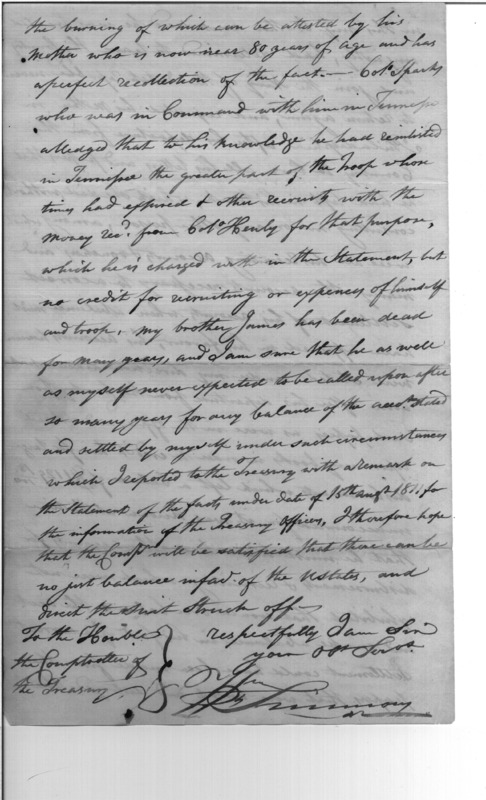 the burning of which can be attested by his
Mother who is now near 80 years of age and has
a perfect recollection of the fact.— Colo. Sparks
who was in Command with him in Tennissee
alledged that to his knowledge he had reinlisted
in Tennissee the greater part of the Troop whose
times had expired & other recruits with the
money recd. from Colo. Henly for that purpose,
which he is charged with in the Statement, but
no credit for recruiting or expences of himself
and troop, my brother James has been dead
for many years, and I am sure that he as well
as myself never expected to be called upon after
so many years for any balance of the acct. stated
and settled by myself under such circumstances
which I reported to the Treasury with a remark on
the Statement of the facts under date of 15th augt. 1811, for
the information of the Treasury Officers, I therefore hope
that the Compr. will be satisfied that there can be
no just balance in favr. of the UStates, and
direct the Suit Struck off—
To the Honble. respectfully I am Sir
the Comptroller of your Obt. Servt.
the Treasury
Simmons